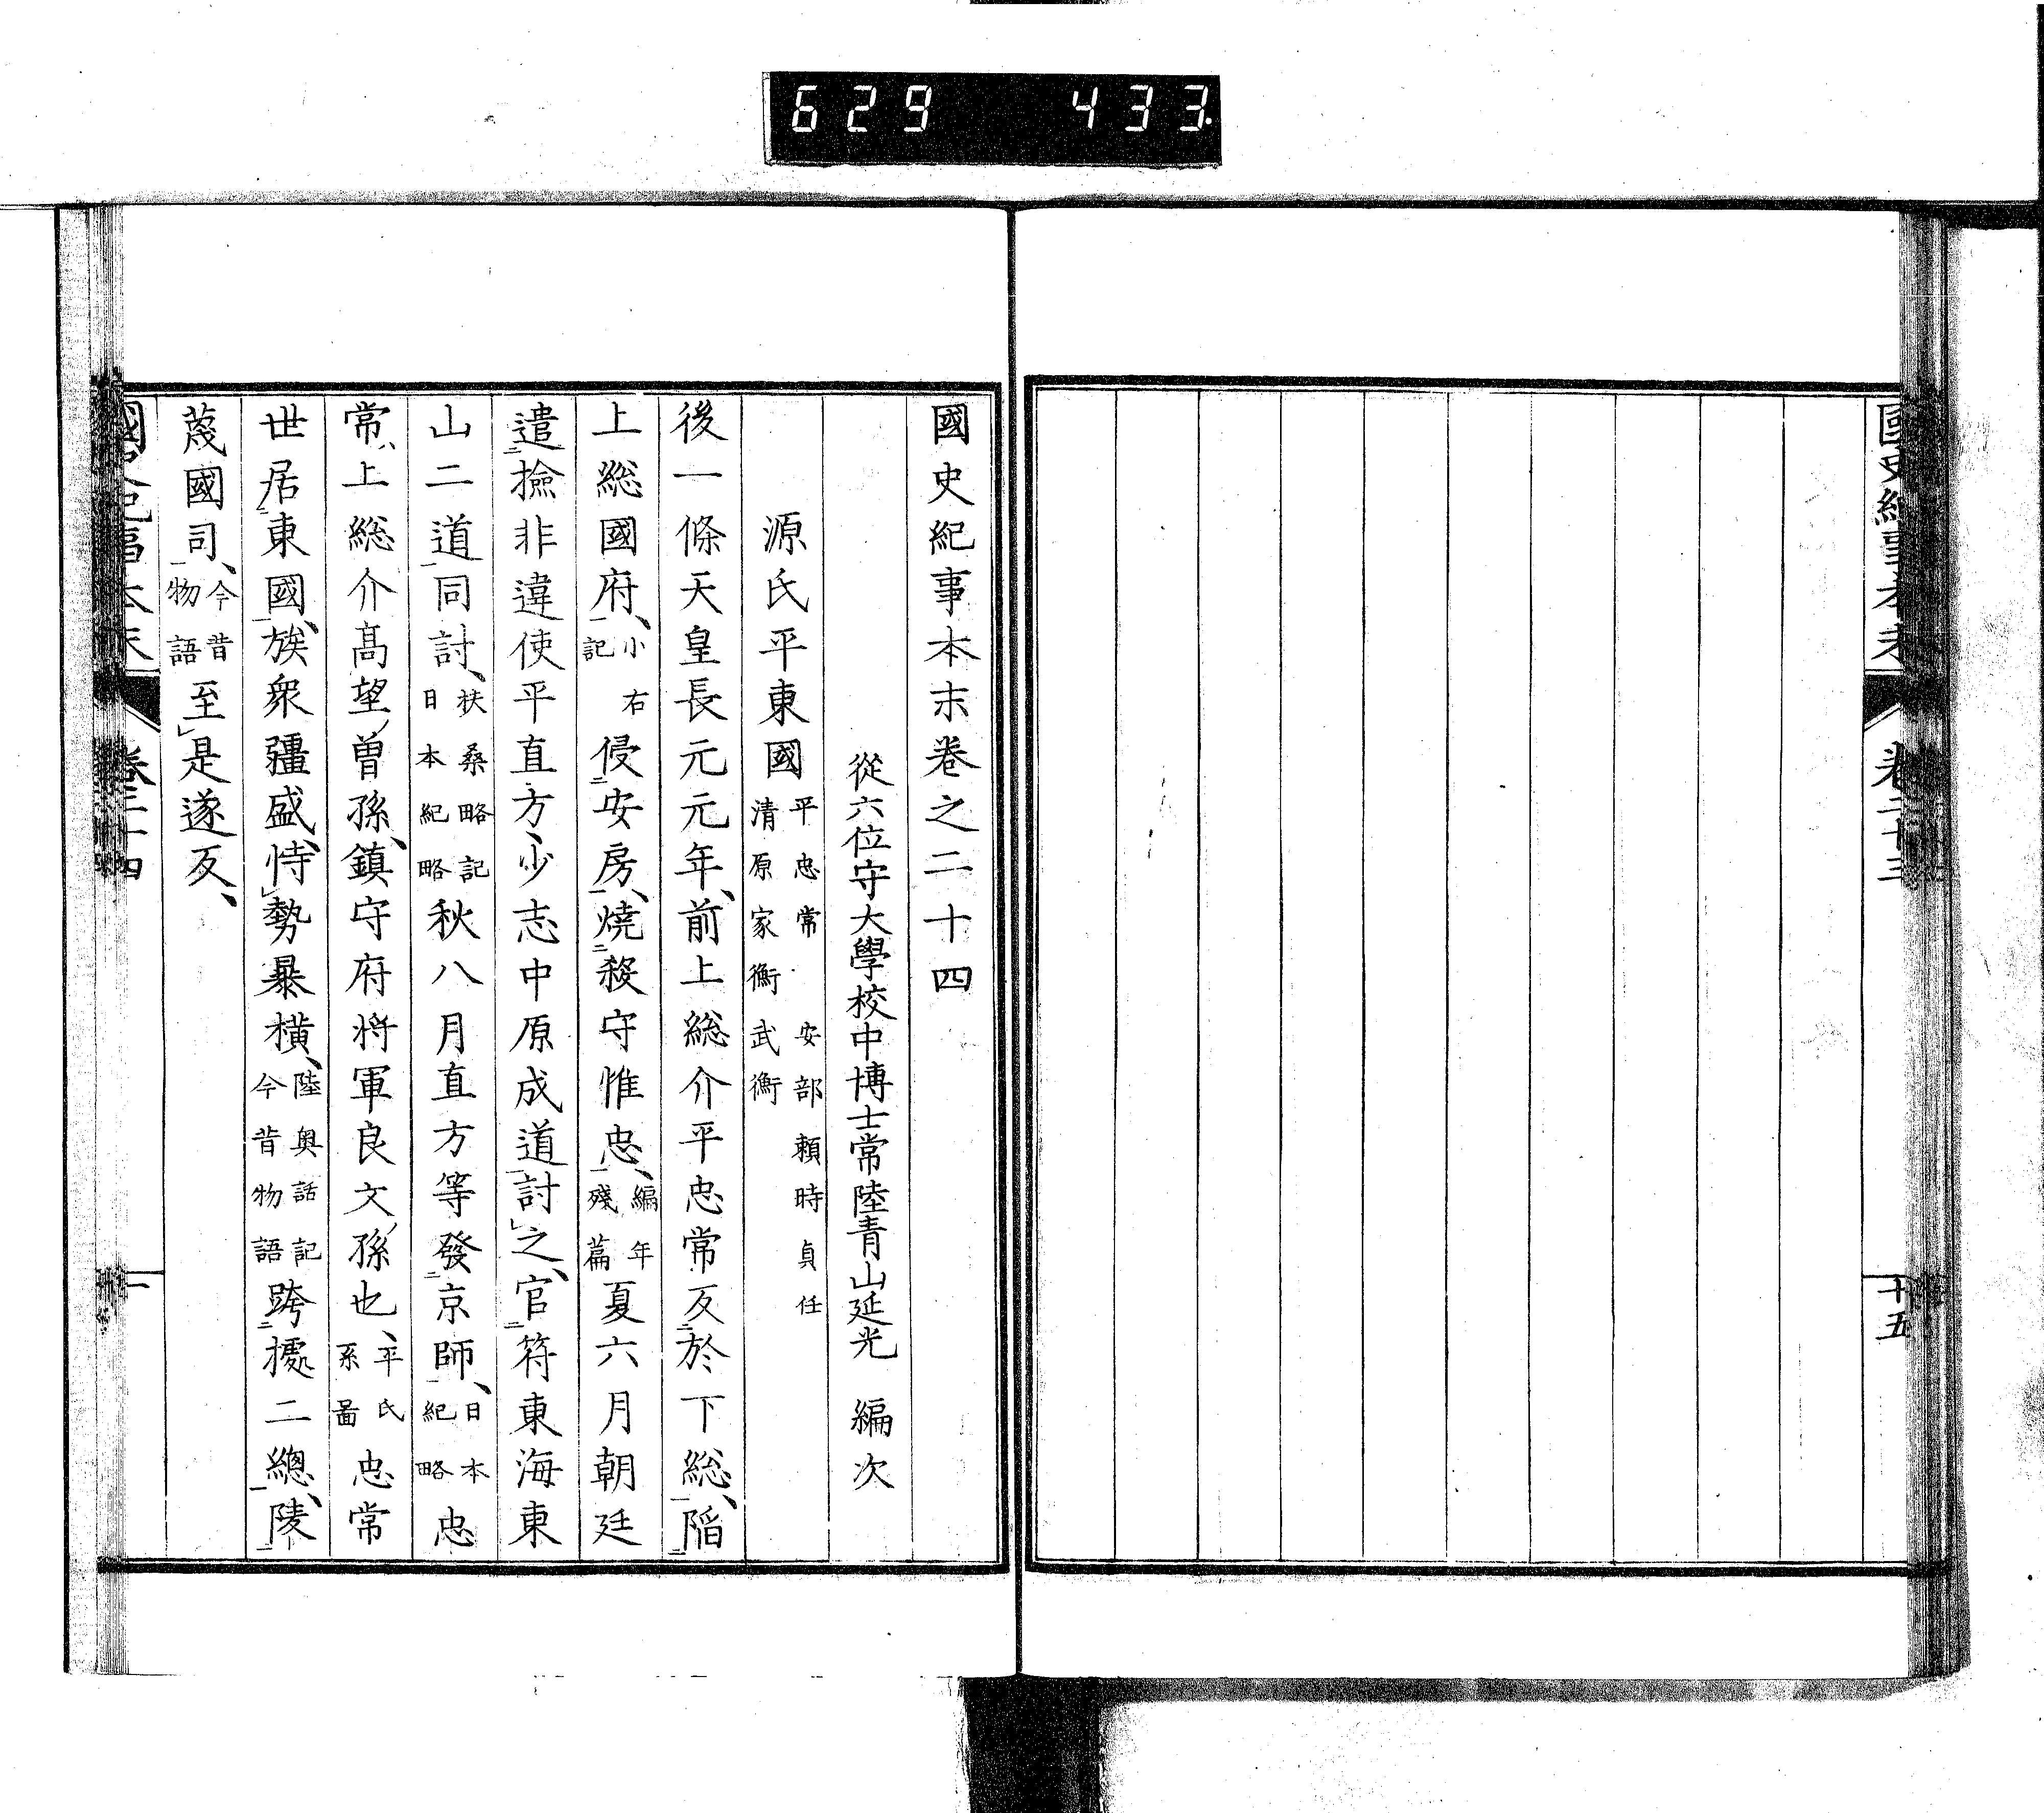 629 433
國史紀事本末
卷二十三
十五
國史紀事本末卷之二十四
從六位守大學校中博士常陸青山延光 編次
源氏平東國 平忠常 安部賴時貞任
清原家衡武衡
後一條天皇長元元年、前上総介平忠常反㆓於下総㆒、陷㆓
上総國府㆒、小右
記 侵㆓安房㆒、燒㆓殺守惟忠㆒、編年
殘篇 夏六月朝廷
遣㆓撿非違使平直方、少志中原成道㆒討㆑之、官㆓符東海東
山二道㆒同討、扶桑略記
日本紀略 秋八月直方等發㆓京師㆒、日本
紀略 忠
常、上総介高望曾孫、鎮守府将軍良文孫也、平氏
系圖 忠常
世居㆓東國㆒、族衆疆盛、恃㆑勢暴橫、陸奥話記
今昔物語 跨㆓據二總㆒、陵㆓
蔑國司㆒、今昔
物語 至㆑是遂反、
國史紀事本末
卷二十四
一